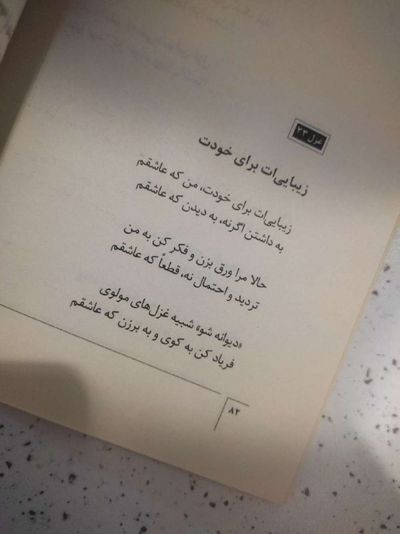 غزل ۲۳
زیبایی‌ات برای خودت
زیبایی‌ات برای خودت، من که عاشقم
به داشتن اگرنه، به دیدن که عاشقم
حالا مرا ورق بزن و فکر کن به من
تردید و احتمال نه، قطعاً که عاشقم
«دیوانه شو» شبیه غزل‌های مولوی
فریاد کن به کوی و به برزن که عاشقم
۸۲